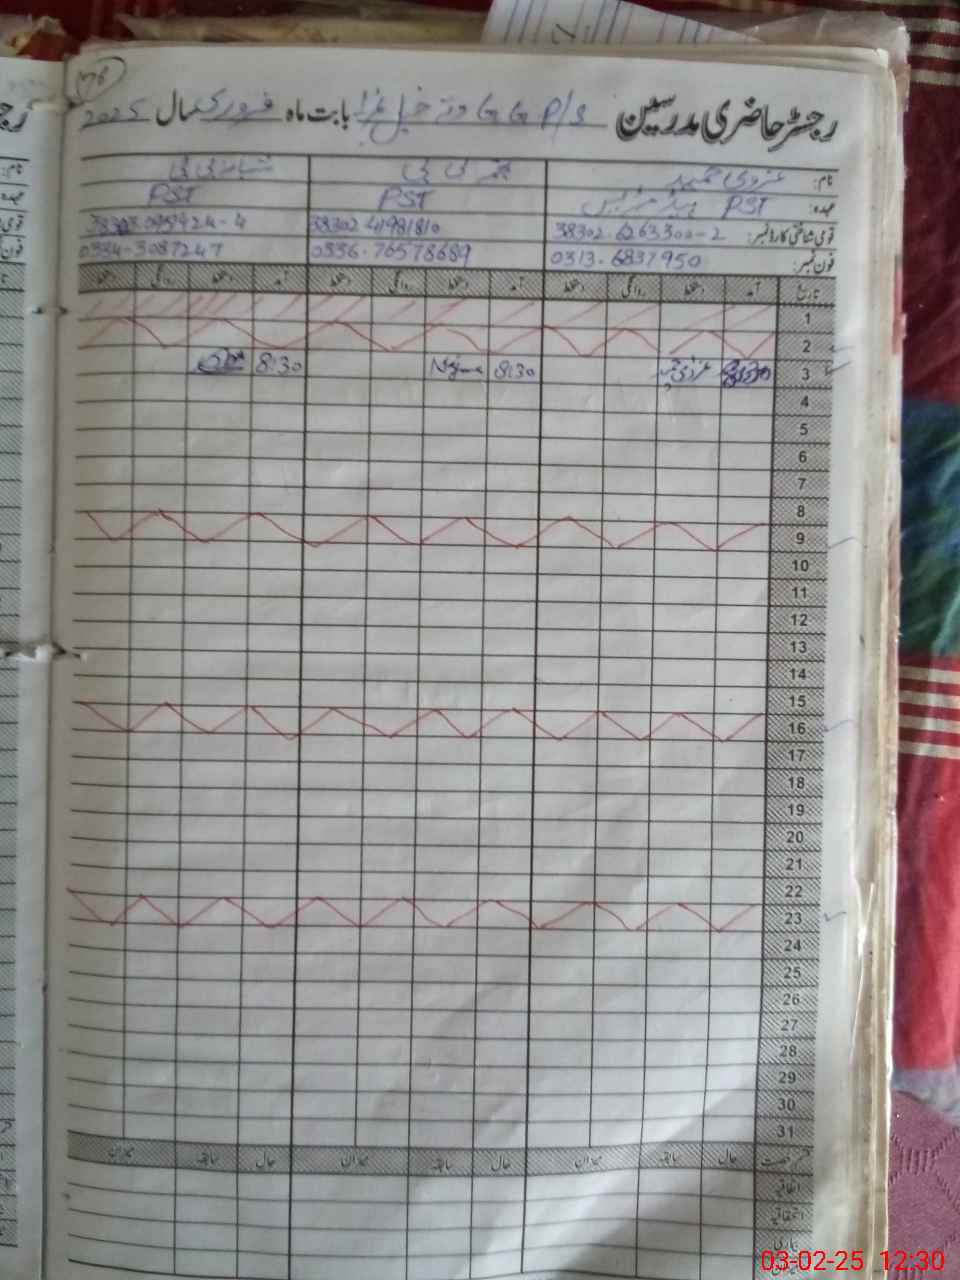 76
رجسٹر حاضری مدرسین G G P/S دتہ خیل بابت ماہ فروری سال 2025
نام:
عہدہ: PST ہیڈ مسٹریس PST PST
قومی شناختی کارڈ نمبر: 38302-6263300-2 38302-41981810
فون نمبر: 0313-6837950 0336-76578689 0334-3087247
تاریخ آمد دستخط روانگی دستخط آمد دستخط روانگی دستخط آمد دستخط روانگی دستخط
1
2
3 8:30 Najma 8:30
4
5
6
7
8
9
10
11
12
13
14
15
16
17
18
19
20
21
22
23
24
25
26
27
28
29
30
31
قسم رخصت حال سابقہ میزان حال سابقہ میزان حال سابقہ میزان
اتفاقیہ
استحقاقیہ
بیماری
03-02-25 12:30